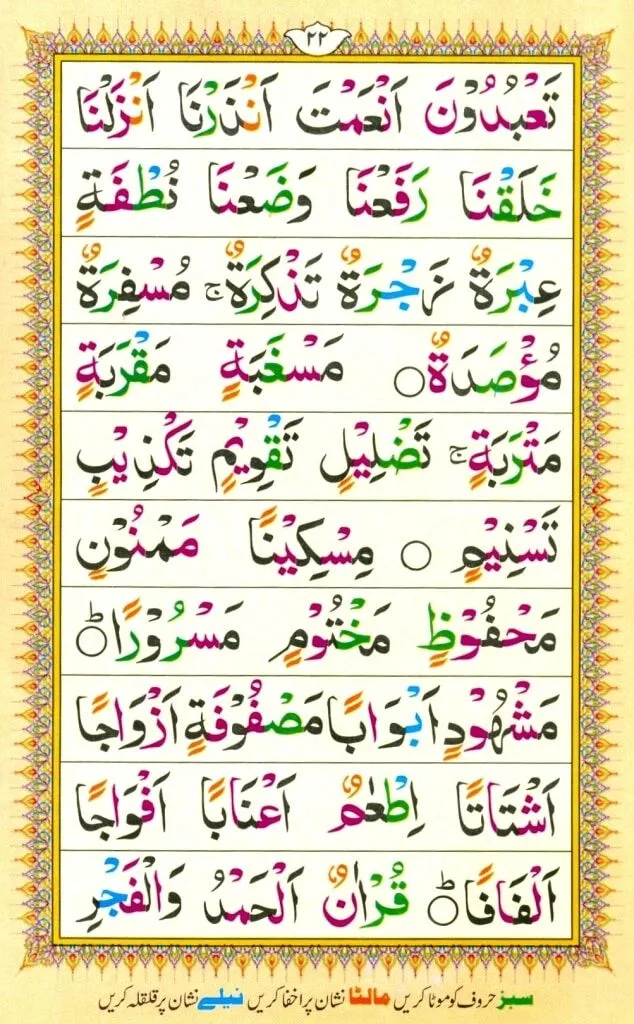 ٢٢
تَعْبُدُوْنَ اَنْعَمْتَ اَنْذَرْنَا اَنْزَلْنَا
خَلَقْنَا رَفَعْنَا وَضَعْنَا نُطْفَةٍ
عِبْرَةٌ زَجْرَةٌ تَذْكِرَةٌ ۚ مُسْفِرَةٌ
مُؤْصَدَةٌ ○ مَسْغَبَةٍ مَقْرَبَةٍ
مَتْرَبَةٍ ۚ تَضْلِيْلٍ تَقْوِيْمٍ تَكْذِيْبٍ
تَسْنِيْمٍ ○ مِسْكِيْنًا مَمْنُوْنٍ
مَحْفُوْظٍ مَخْتُوْمٍ مَسْرُوْرًا ○ؕ
مَشْهُوْدٍ اَبْوَابًا مَصْفُوْفَةٍ اَزْوَاجًا
اَشْتَاتًا اِطْعٰمٌ اَعْنَابًا اَفْوَاجًا
اَلْفَافًا ○ؕ قُرْاٰنٌ اَلْحَمْدُ وَالْفَجْرِ
سبز حروف کو موٹا کریں مالٹا نشان پر اخفا کریں نیلے نشان پر قلقلہ کریں